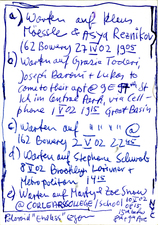 a) Warten auf Klaus
Moessle & Asya Reznikov
162 Bowery 27 IV 02 1905
b) Warten auf Grazia Toderi,
Joseph Baroni + Lukas to
come to their apt @ 9E St
Ich im Central Park, via Cell-
phone 1 V 02 1915 Great Basin
c) Warten auf " " " @
162 Bowery 2 V 02 2245
d) Warten auf Stephane Schwarb
8 V 02 Brooklyn Lorimer +
Metropolitan 1415
e) Warten auf Marty + Zoe Snow
@ CORLEARS COLLEGE / school
Blonde "Endless"